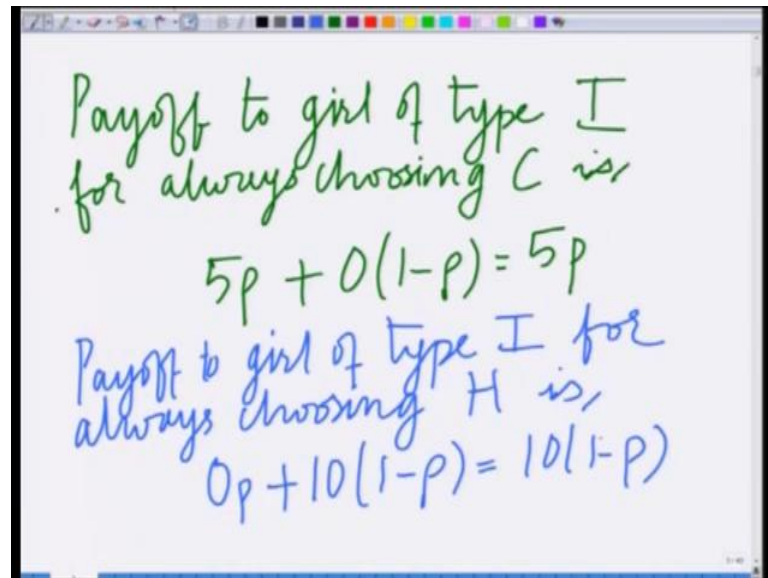 Payoff to girl of type I
for always choosing C is,
5p + 0(1-p) = 5p
Payoff to girl of type I for
always choosing H is,
0p + 10(1-p) = 10(1-p)